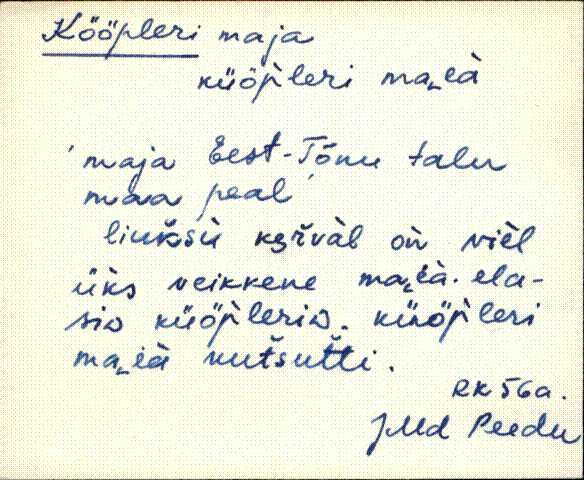 Kööpleri maja
küöp̀leri ma˽ià
'maja Eest-Tõnu talu
maa peal'
liuksù kõrvàl oǹ vièl
üks veikkene ma˽ià. ela-
siɷ küöp̀leriɷ. küöp̀leri
ma˽ià kutšutti.
RK 56a.
JMd Peedu